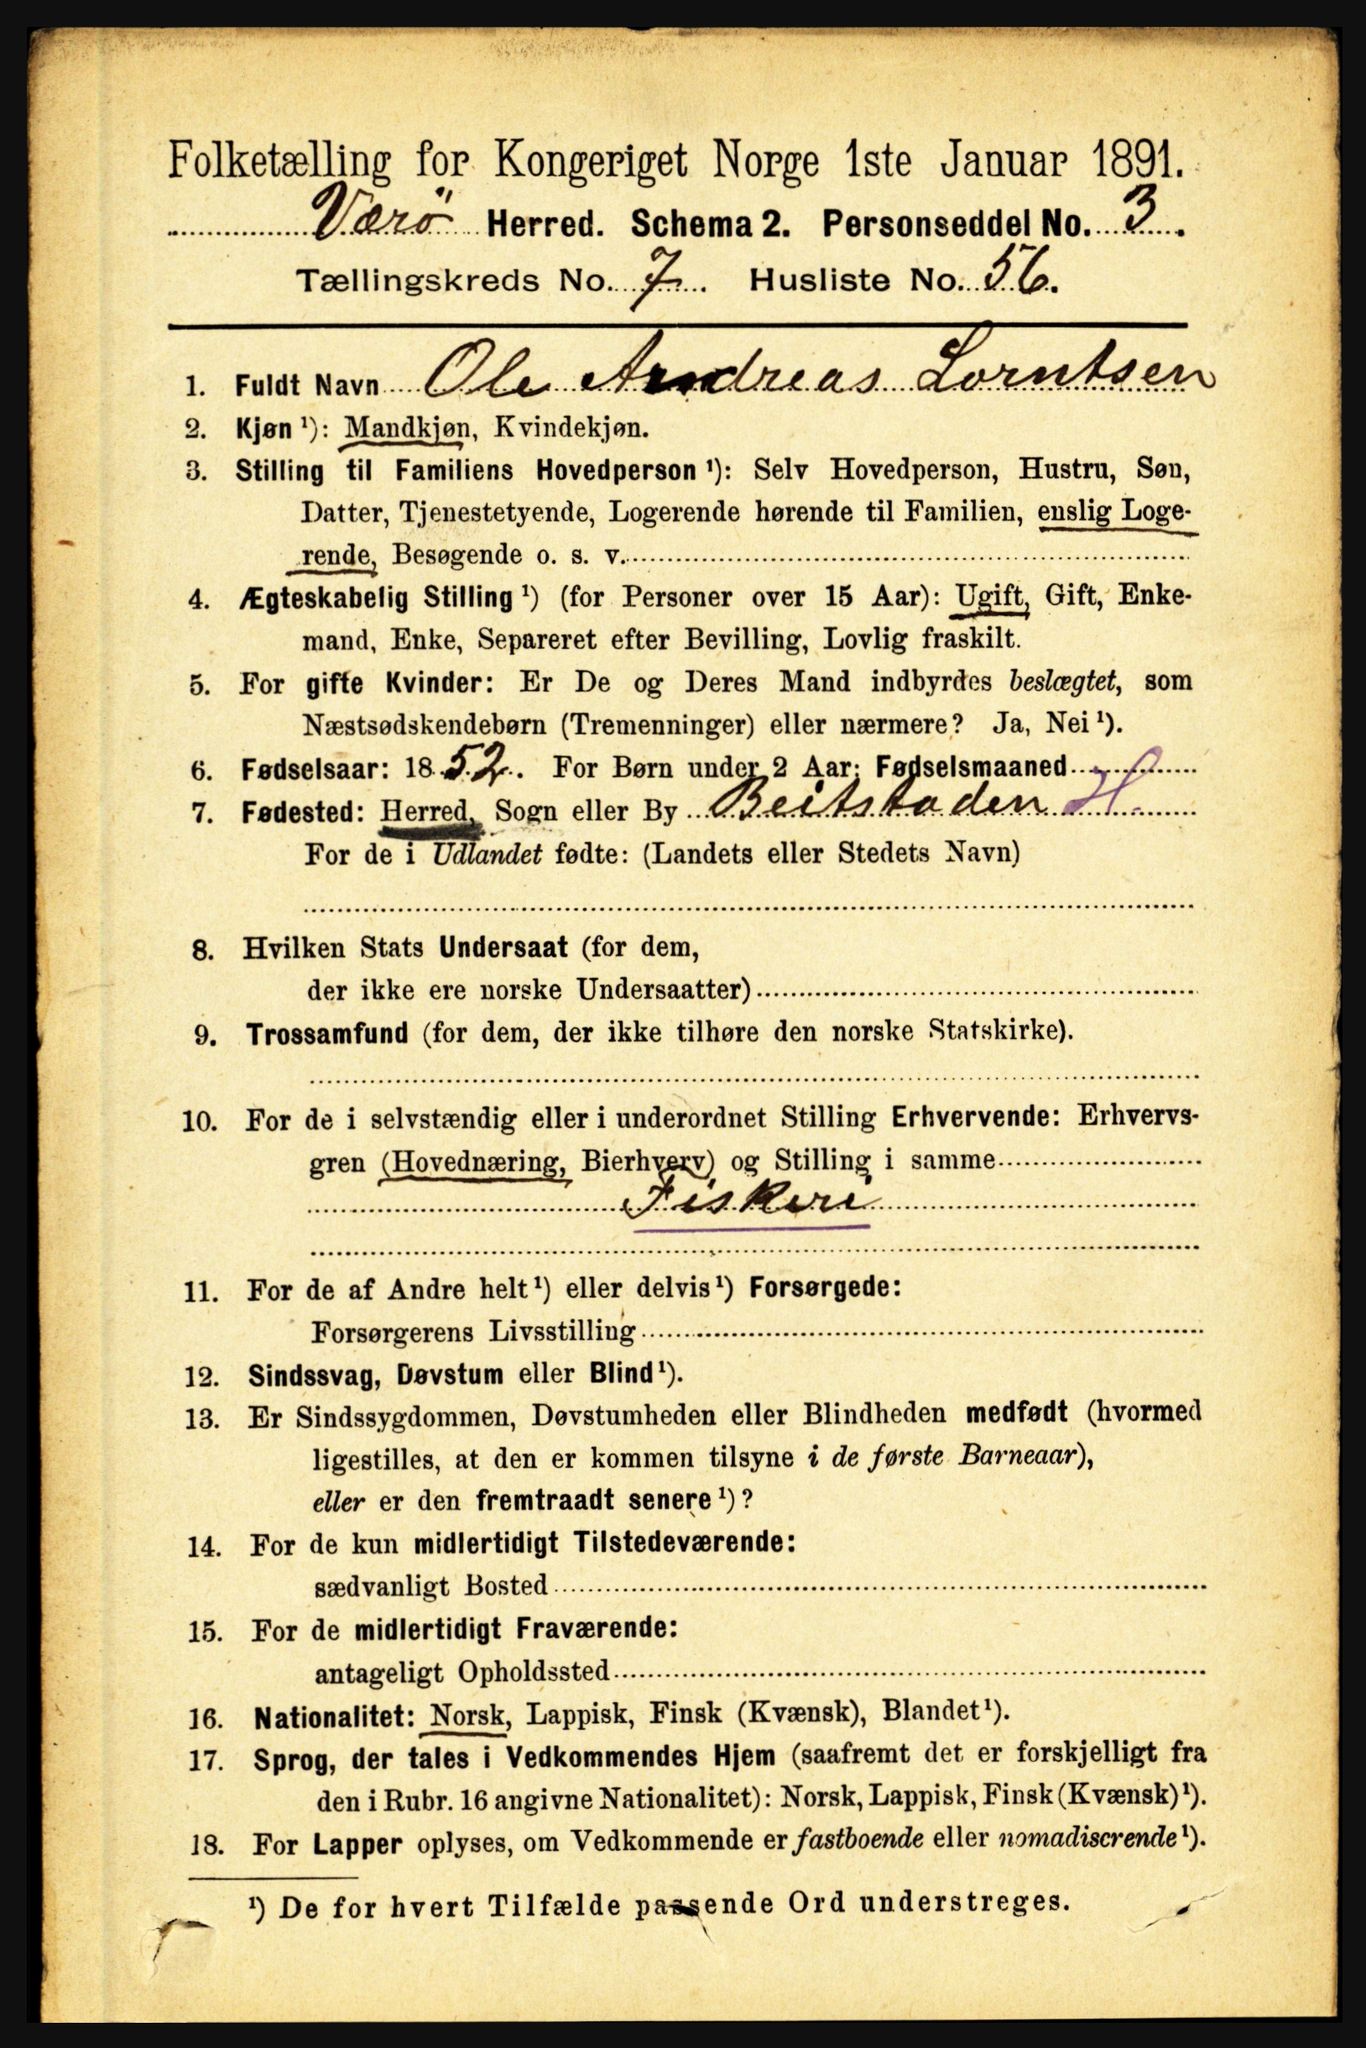 Folketælling for Kongeriget Norge 1ste Januar 1891.
Værö Herred. Schema 2. Personseddel No. 3.
Tællingskreds No. 7. Husliste No. 56.
1. Fuldt Navn Ole Andreas Lorntsen
2. Kjøn ¹): Mandkjøn, Kvindekjøn.
3. Stilling til Familiens Hovedperson ¹): Selv Hovedperson, Hustru, Søn,
Datter, Tjenestetyende, Logerende hørende til Familien, enslig Loge-
rende, Besøgende o. s. v.
4. Ægteskabelig Stilling ¹) (for Personer over 15 Aar): Ugift, Gift, Enke-
mand, Enke, Separeret efter Bevilling, Lovlig fraskilt.
5. For gifte Kvinder: Er De og Deres Mand indbyrdes beslægtet, som
Næstsødskendebørn (Tremenninger) eller nærmere? Ja, Nei ¹).
6. Fødselsaar: 1852. For Børn under 2 Aar: Fødselsmaaned
7. Fødested: Herred, Sogn eller By Beitstaden H.
For de i Udlandet fødte: (Landets eller Stedets Navn)
8. Hvilken Stats Undersaat (for dem,
der ikke ere norske Undersaatter)
9. Trossamfund (for dem, der ikke tilhøre den norske Statskirke).
10. For de i selvstændig eller i underordnet Stilling Erhvervende: Erhvervs-
gren (Hovednæring, Bierhverv) og Stilling i samme
Fiskeri
11. For de af Andre helt ¹) eller delvis ¹) Forsørgede:
Forsørgerens Livsstilling
12. Sindssvag, Døvstum eller Blind ¹).
13. Er Sindssygdommen, Døvstumheden eller Blindheden medfødt (hvormed
ligestilles, at den er kommen tilsyne i de første Barneaar),
eller er den fremtraadt senere ¹)?
14. For de kun midlertidigt Tilstedeværende:
sædvanligt Bosted
15. For de midlertidigt Fraværende:
antageligt Opholdssted
16. Nationalitet: Norsk, Lappisk, Finsk (Kvænsk), Blandet ¹).
17. Sprog, der tales i Vedkommendes Hjem (saafremt det er forskjelligt fra
den i Rubr. 16 angivne Nationalitet): Norsk, Lappisk, Finsk (Kvænsk) ¹).
18. For Lapper oplyses, om Vedkommende er fastboende eller nomadiserende ¹).
¹) De for hvert Tilfælde passende Ord understreges.